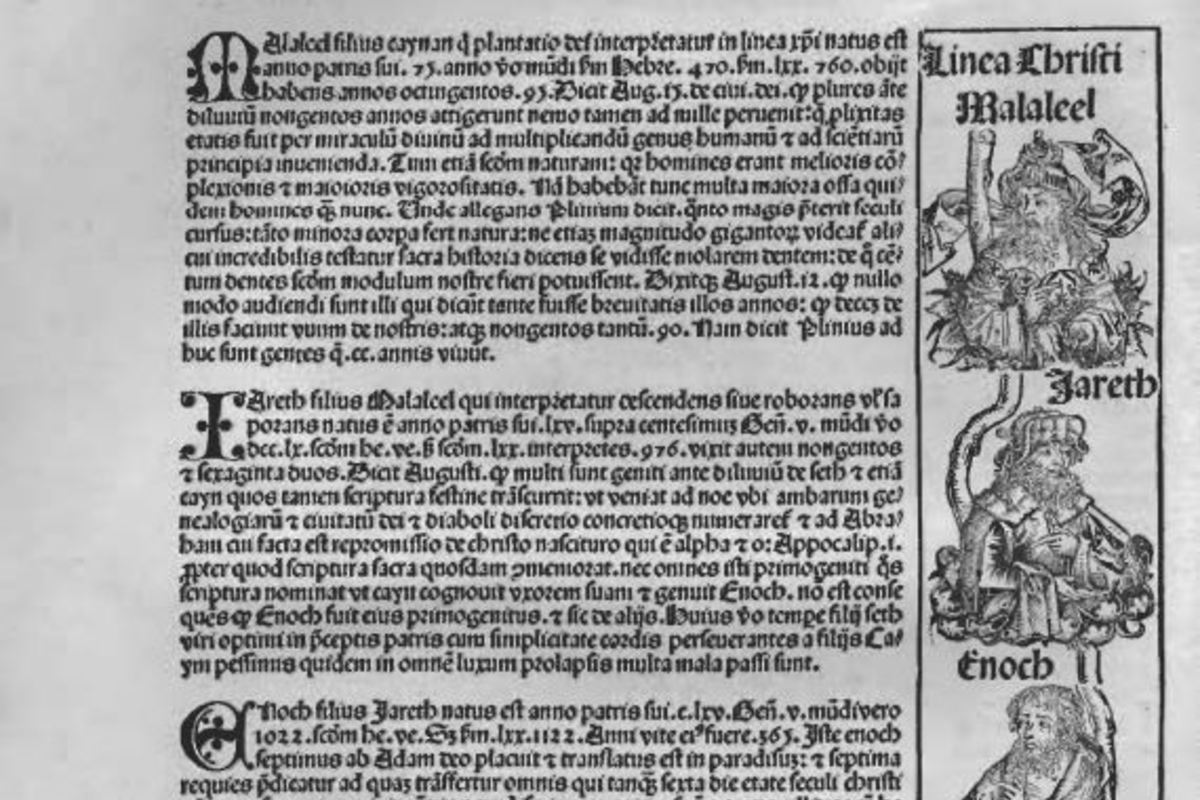 Malaleel filius caynan q̄ plantatio dei interpretatur in linea xp̄i natus est
anno patris sui. 75. anno v̄o mūdi s̄m Hebre. 470. s̄m. lxx. 760. obijt
habens annos octingentos. 95. Dicit Aug. 15. de ciui. dei. ꝙ plures āte
diluuiū nongentos annos attigerunt nemo tamen ad mille peruenit: q̄ plixitas
etatis fuit per miraculū diuinū ad multiplicandū genus humanū ⁊ ad sciētiarū
principia inuenienda. Tum etiā scōm naturam: qr homines erant melioris cō⸗
plexionis ⁊ maioioris vigorositatis. Nā habebāt tunc multa maiora ossa qui⸗
dem homines q̄ʒ nunc. Unde allegans Plinium dicit. q̄nto magis p̄terit seculi
cursus: tāto minora corpa fert natura: ne etiaʒ magnitudo gigantoꝝ videat᷑ ali⸗
cui incredibilis testatur sacra historia dicens se vidisse molarem dentem: de q̄ cē⸗
tum dentes scōm modulum nostre fieri potuissent. Dixitqʒ August. 12. ꝙ nullo
modo audiendi sunt illi qui dicūt tante fuisse breuitatis illos annos: ꝙ deceʒ de
illis faciunt vnum de nostris: atqʒ nongentos tantū. 90. Nam dicit Plinius ad
huc sunt gentes q̄. cc. annis viuūt.
IAreth filius Malaleel qui interpretatur descendens siue roborans vl̓ sa
porans natus ē anno patris sui. lxv. supra centesimuʒ Geñ. v. mūdi v̄o
dcc. lx. scōm he. ve. s̄ scōm. lxx. interpretes. 976. vixit autem nongentos
⁊ sexaginta duos. Dicit Augusti. ꝙ multi sunt geniti ante diluuiū de seth ⁊ etiā
cayn quos tamen scriptura festine trāscurrit: vt veniat ad noe vbi ambarum ge⸗
nealogiarū ⁊ ciuitatū dei ⁊ diaboli discretio concretioqʒ numeraret᷑ ⁊ ad Abra⸗
ham cui facta est repromissio de christo nascituro qui ē alpha ⁊ o: Appocalip. i.
ꝓpter quod scriptura sacra quosdam ꝯmemorat. nec omnes isti primogeniti q̄s
scriptura nominat vt cayn cognouit vxorem suam ⁊ genuit Enoch. nō est conse
quēs ꝙ Enoch fuit eius primogenitus. ⁊ sic de alijs. Huius v̄o tempe filij seth
viri optimi in p̄ceptis patris cum simplicitate cordis perseuerantes a filijs Ca⸗
ym pessimis quidem in omnē luxum prolapsis multa mala passi sunt.
ENoch filius Jareth natus est anno patris sui. c. lxv. Geñ. v. mūdi vero
1022. scōm he. ve. Sʒ s̄m. lxx. 1122. Anni vite ei᷒ fuere. 365. Iste enoch
septimus ab Adam deo placuit ⁊ translatus est in paradisuʒ: ⁊ septima
requies p̄dicatur ad quaʒ trāsfertur omnis qui tanqʒ̄ sexta die etate seculi christi
Linea Christi
Malaleel
Jareth
Enoch